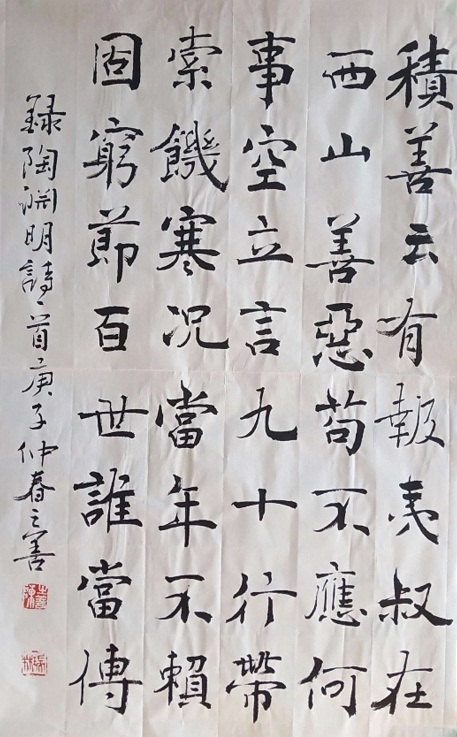 積善云有報夷叔在
西山善惡苟不應何
事空立言九十行帶
索饑寒况當年不賴
固窮節百世誰當傳
録陶渊明詩一首庚子仲春之善